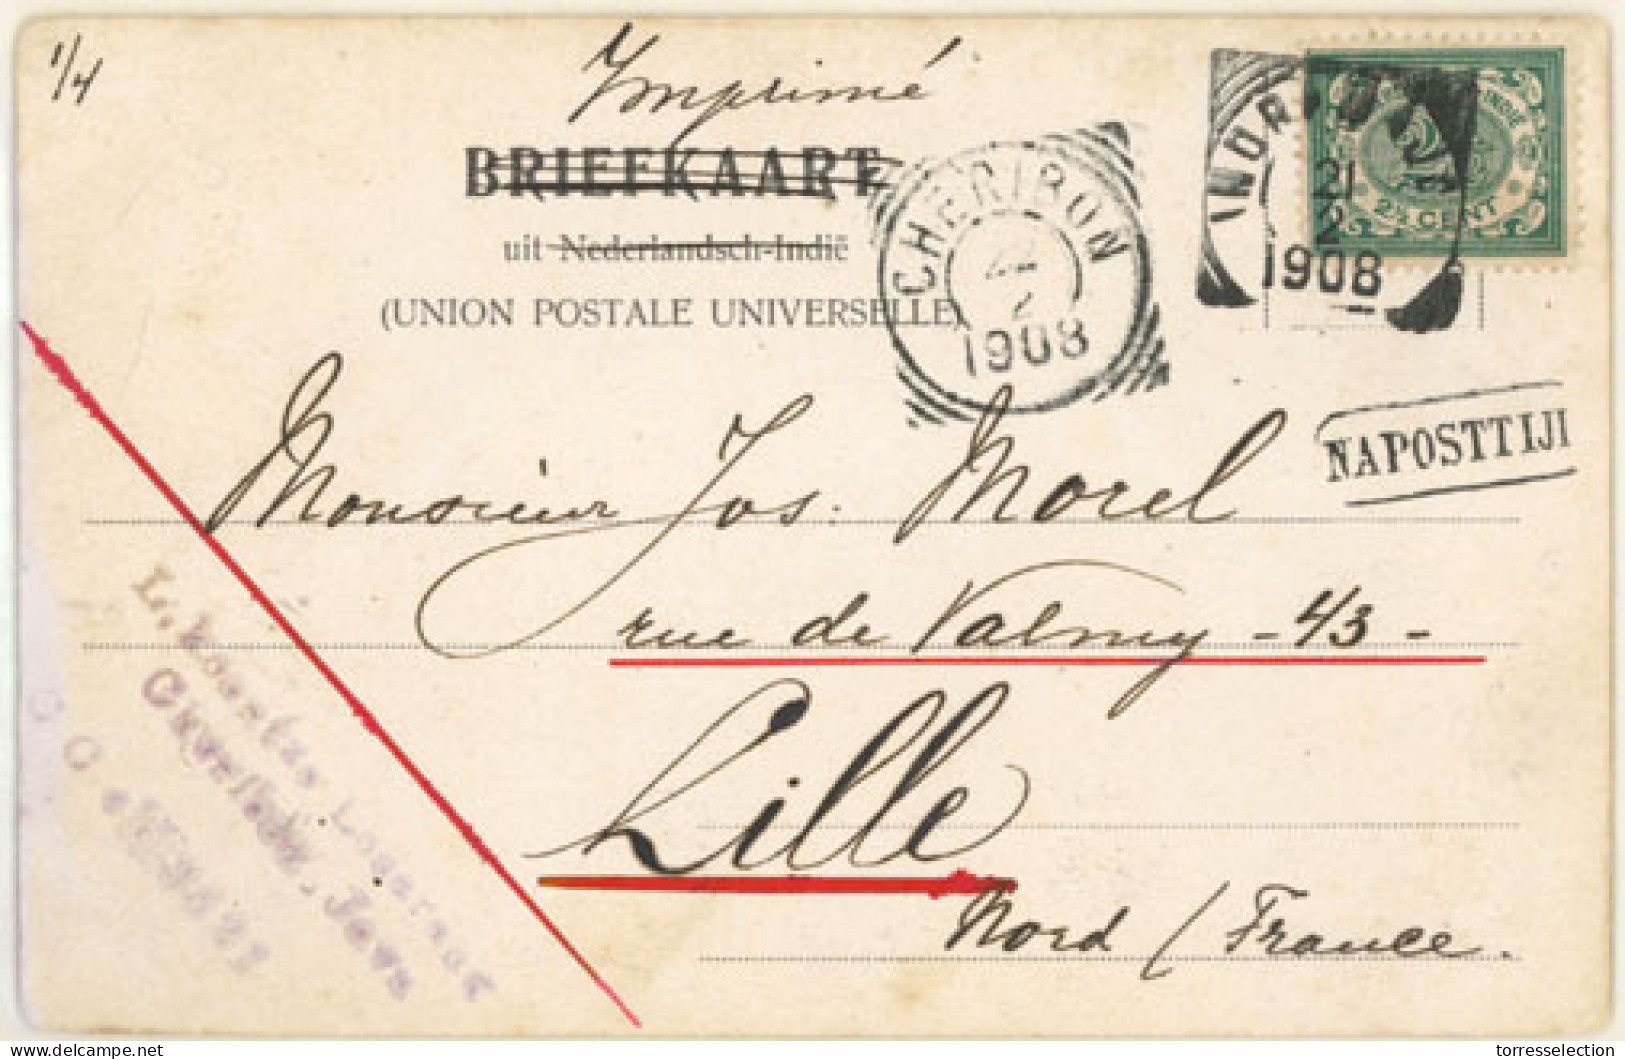 1/4
Imprimé
BRIEFKAART
uit Nederlandsch-Indië
(UNION POSTALE UNIVERSELLE)
CHERIBON
2
1908
21
2
1908
INDIE
2½ CENT
NAPOSTTIJD
Monsieur Jos: Morel
rue de Valmy - 43 -
Lille
Nord / France.
Losarang
Cheribon. Java
delcampe.net
torresselection